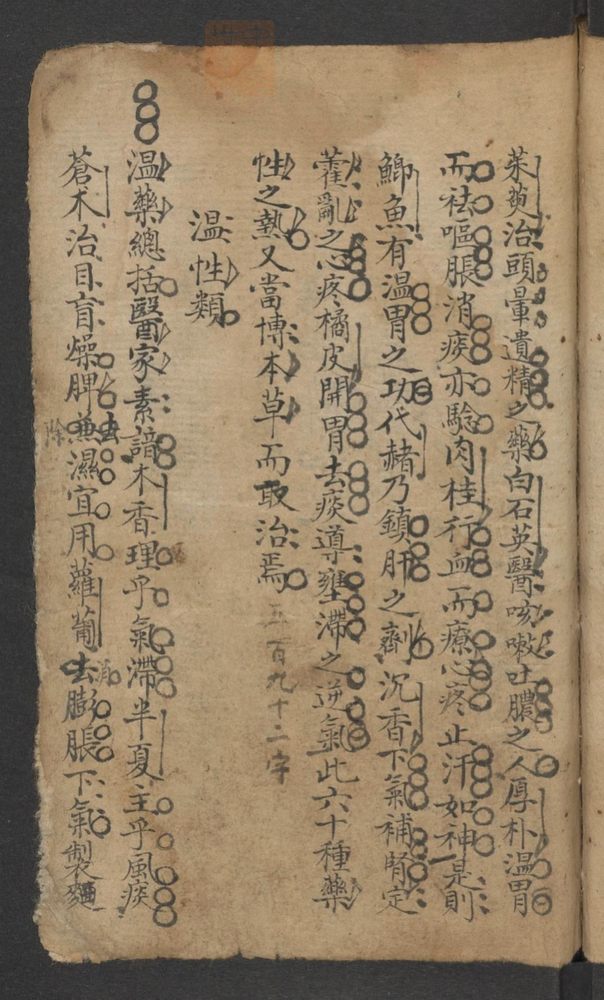 茱萸治頭暈遺精之藥白石英醫咳嗽吐膿之人厚朴温胃
而祛嘔脹消痰亦驗肉桂行血而療心疼止汗如神是則
鯽魚有温胃之功代赭乃鎮肝之劑沉香下氣補腎定
藿亂之心疼橘皮開胃去痰導壅滯之逆氣此六十種藥
性之熱又當博本草而取治焉 五百九十二字
温性類
温藥總括醫家素諳木香理乎氣滯半夏主乎風痰
蒼朮治目盲燥脾兼濕宜用蘿蔔去膨脹下氣製麵
去
除
消